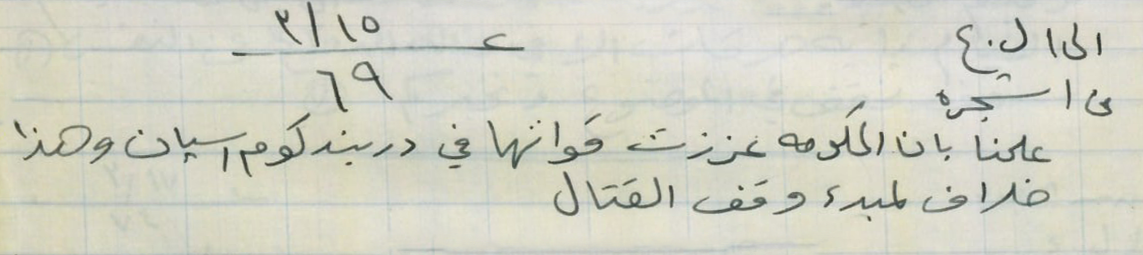 الى ال.ع ٣/١٥
من ا شجره ٦٩
علمنا بان الحكومه عززت قواتها في دربند كوم اسپان وهذا
خلاف لمبدء وقف القتال